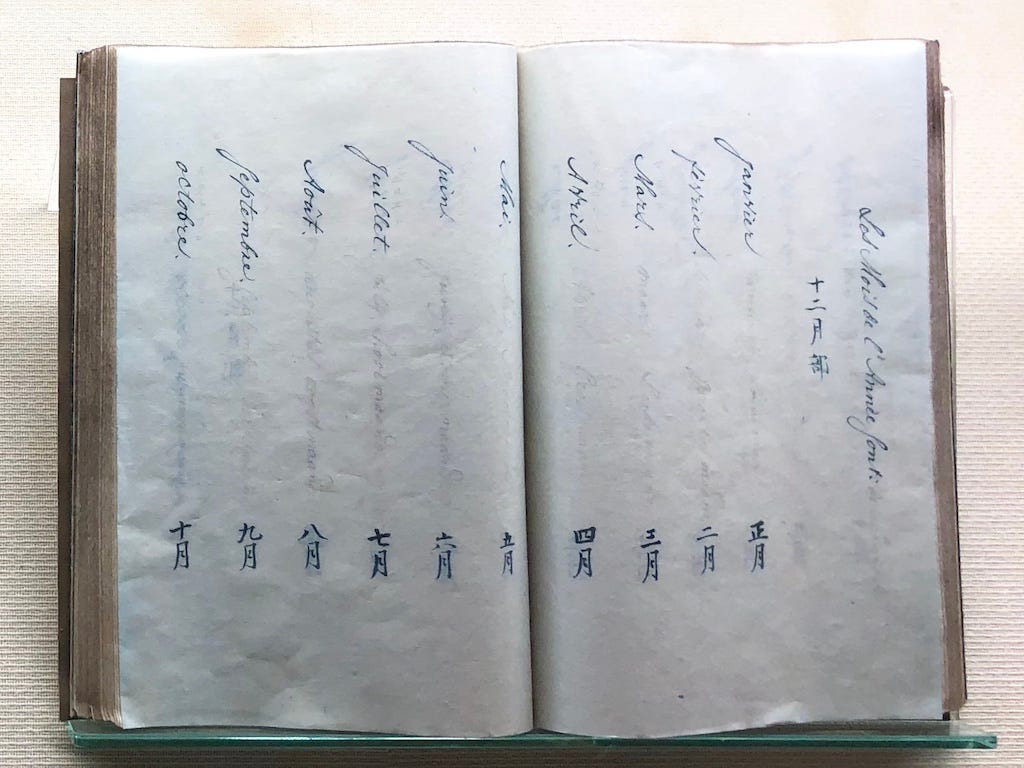 Les Mois de l'Année sont:
十二月
janvier 正月
fevrier. 二月
Mars. 三月
Avril. 四月
Mai. 五月
Juin. 六月
Juillet. 七月
Août. 八月
Septembre. 九月
octobre. 十月